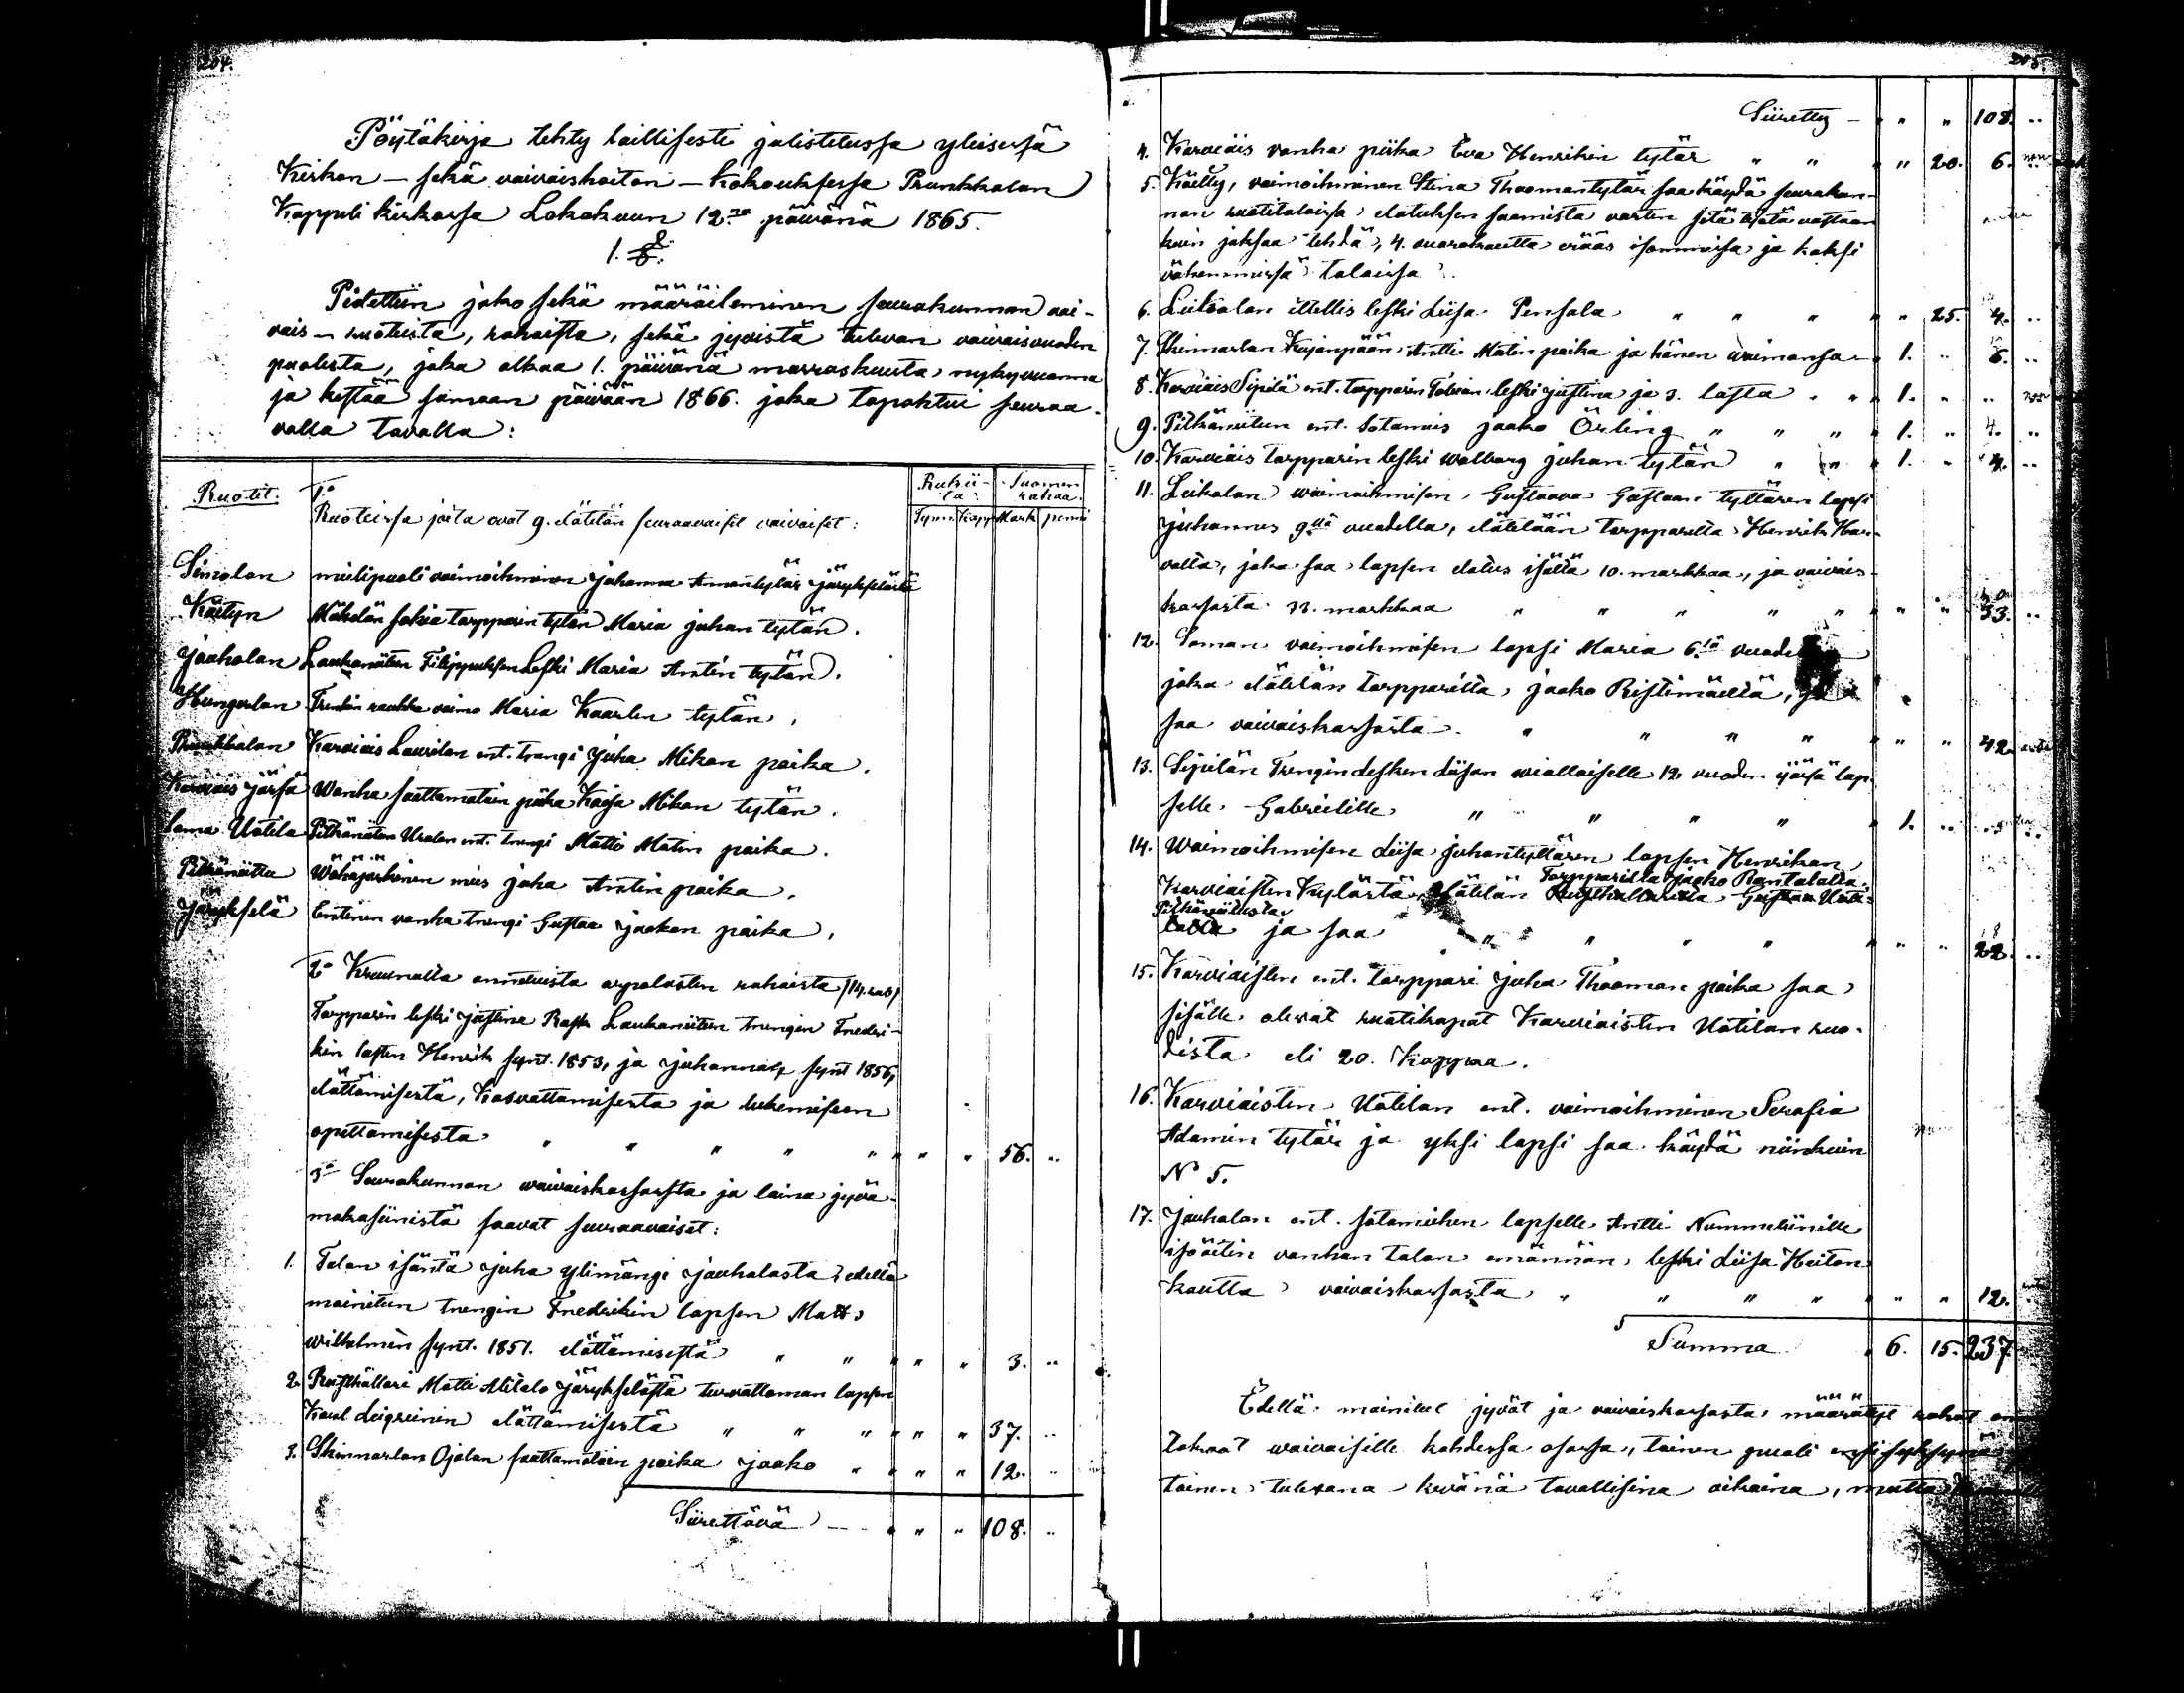 204.
Pöytäkirja tehty laillisesti julistetussa yleisessä
Kirkon – sekä vaivaishoiton – Kokouksessa Prunkkalan
Kappeli kirkossa Lokakuun 12na päivänä 1865.
1. §.
Pidettiin jako sekä määräileminen seurakunnan vai-
vais – ruotuista, rahoista, sekä jyvistä tulevan vaivaisvuoden
puolesta, joka alkaa 1. päivänä marraskuuta nykyvuonna
ja kestää samaan päivään 1866. joka tapahtui seuraa-
valla tavalla:
Ruotit.
Rukii-
ta.
Suomen
rahaa.
Tynn. Kapp. Mark penni
1o
Ruoteissa joita ovat 9. elätetän seuraavaiset vaivaiset:
Simolan mielipuoli vaimoihminen Johanna Annantytär Järykselästä
Käetyn Mäkelän sokia torpparin tytän Maria Juhan tytän.
Jauholan Laukaniitun Filippuksen Leski Maria Antin tytän.
Hungerlan Trenkin raukka vaimo Maria Kaarlen tytän.
Prunkkalan Karviais Laurilan ent. trengi Juha Mikon poika.
Karviais Jäysä Wanha saattamatoin piika Kaisa Mikon tytän.
Soma Uotila Pitkäniitun Uralan ent. trengi Matti Matin poika.
Pitkäniittu Wähäjärkinen mies Juha Antin poika.
Järykselä Entinen vanha trengi Gustaa Jaakon poika.
2o Kruunulta annetuista orpolasten rahoista (14. rub)
Torpparin leski Justina Rask Laukaniitun trengin Fredri-
kin lasten Henrik synt. 1853, ja Juhannan synt 1856,
elättämisestä, Kasvattamisesta ja lukemiseen
opettamisesta " " " " " " " 56. ..
3o Seurakunnan vaivaiskassasta ja laina jyvä-
makasiinista saavat seuraavaiset:
1. Talon isäntä Juha Ylimängi Jauhalasta edellä
mainitun trengin Fredrikin lapsen Matts
Wilhelmin synt. 1851. elättämisestä " " " " " 3. ..
2. Rusthållari Matti Alitalo Järykselästä turvattoman lapsen
Kaul Leigreinin elättämisestä " " " " " " 37. ..
3. Skinnarlan Ojalan saattamatoin poika Jaako " " " " 12. ..
Siirettävä — " " " 108. ..
205.
Siiretty — " " " 108. ..
4. Karviais vanha piika Eva Henrikin tytär " " " " 20. 6.
5. Käetty, vaimoihminen Stina Thoomantytär saa käydä seurakun-
nan ruotitaloissa elatuksen saamista varten sitä työtä vastaan
kuin jaksaa tehdä, 4. vuorokautta erääs isommissa ja kaksi
vähemmissä taloissa.
6. Leikolan ittellis leski Liisa Pensala " " " " " 25. 4. ..
7. Skinnarlan Kujanpään Antti Matin poika ja hänen vaimonsa 1. .. 6. ..
8. Karviais Sipilä ent. torpparin Tobian leski Justina ja 3. lasta " " 1. " ..
9. Pitkäniitun ent. Sotamies Jaako Örling " " " " 1. .. 4. ..
10. Karviais torpparin leski Walborg Juhan tytän " " " 1. " 4. ..
11. Leikolan vaimoihmisen Gustaava Gustaan tyttären lapsi
Juhannus 9llä vuodella, elätetään torpparilta Henrik Har-
valta, joka saa lapsen elatus isältä 10. markkaa, ja vaivais-
kassasta 33. markkaa " " " " " " " 33. ..
12. Soman vaimoihmisen lapsi Maria 6lä
joka elätetän torpparilta Jaako Ristimäeltä,
saa vaivaiskassasta " " " " " " " 42.
13. Sipilän Trengin Lesken Liisan viallaiselle 12. vuoden
selle Gabrielille " " " " 1. ..
14. Waimoihmisen Liisa Juhantyttären lapsen Henrikan
Torpparilta Jaako Rantalalta
Karviaisten Kylästä, elätetän Rusthållarilta Gustaa Uoti-
Pitkäniitusta
lalta ja saa " " " " " " " 22. ..
15. Karviaisten ent. torppari Juha Thooman poika saa
sisälle olevat ruotikapat Karviaisten Uotilan ruo-
dista eli 20. Kappaa.
16. Karviaisten Uotilan ent. vaimoihminen Serafia
Adamin tytär ja yksi lapsi saa käydä niinkuin
No 5.
17. Jauhalan ent. sotamiehen lapselle Antti Nummeliinille
isoäitin vanhan talon emännän, leski Liisa Heiton
kautta vaivaiskassasta " " " " " " " 12.
Summa " 6. 15. 237
Edellä mainitut jyvät ja vaivaiskassasta määrätyt rahat
toinen puoli
toinen tulevana keväänä tavallisina aikoina, mutta